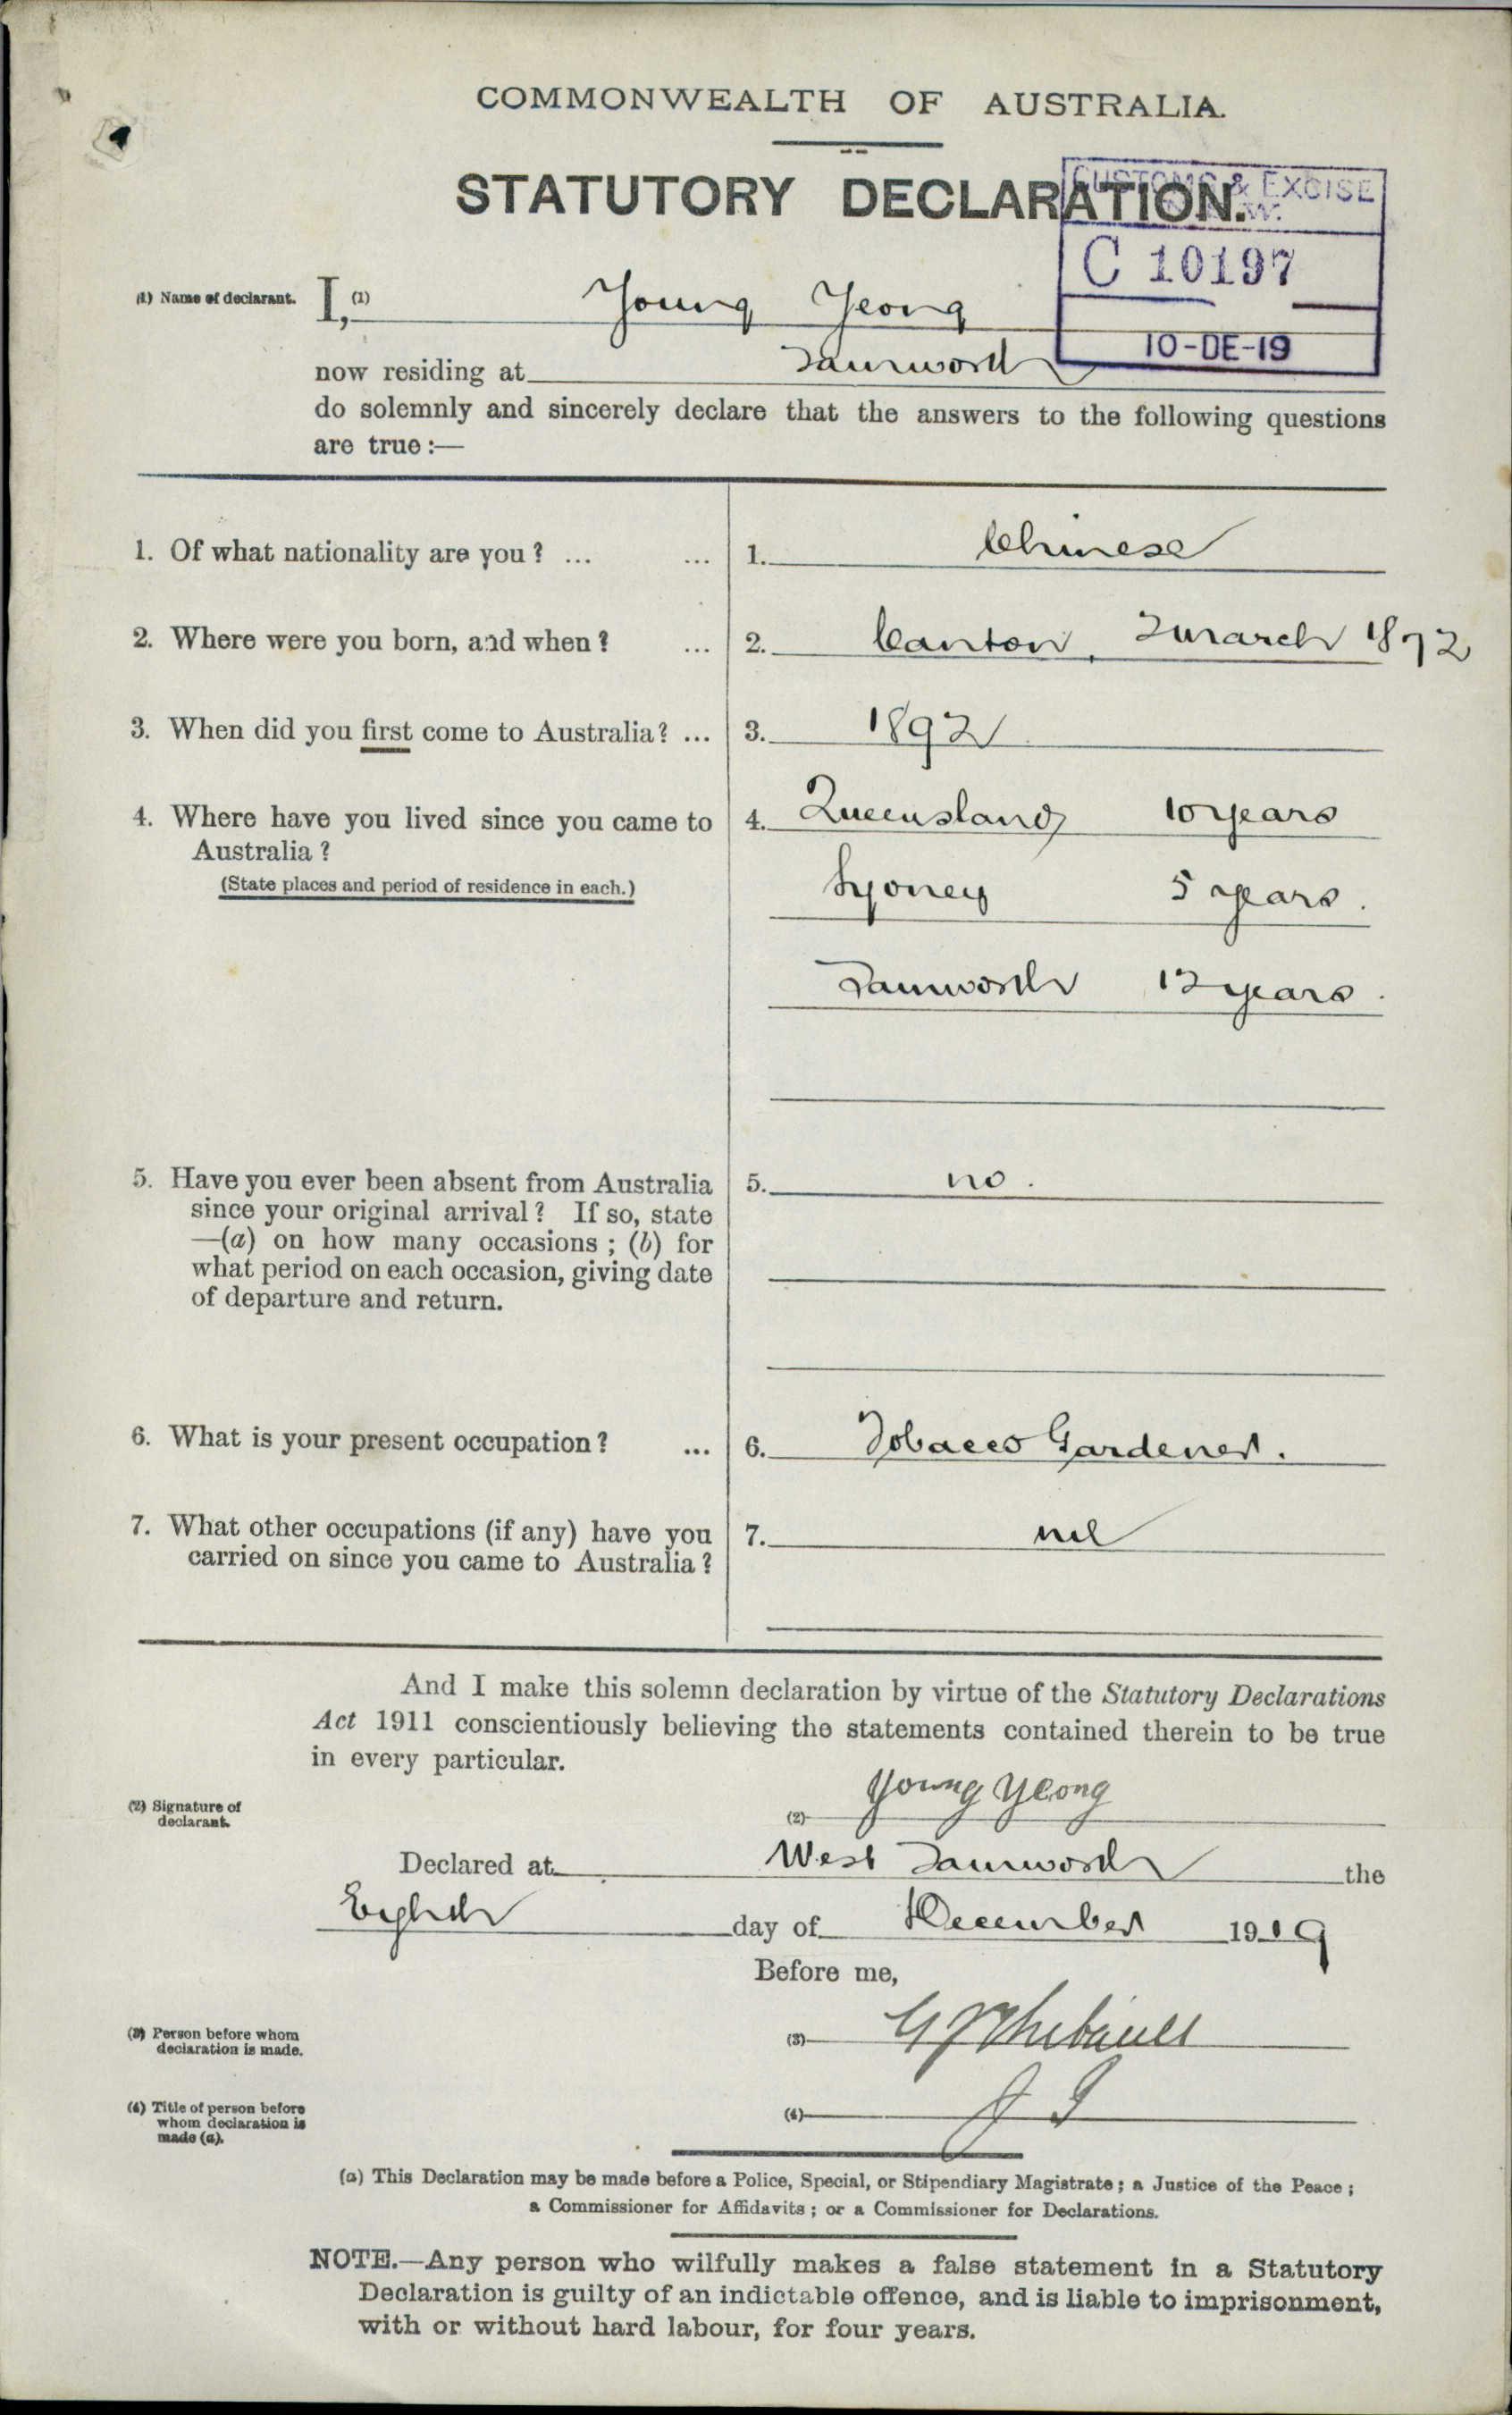 COMMONWEALTH OF AUSTRALIA.
STATUTORY DECLARATION.
CUSTOMS & EXCISE
C 10197
10-DE-19
(1) Name of declarant. I, (1) Young Yeong
now residing at Tamworth
do solemnly and sincerely declare that the answers to the following questions
are true:—
1. Of what nationality are you? ... ... 1. Chinese
2. Where were you born, and when? ... 2. Canton, March 1872
3. When did you first come to Australia? ... 3. 1892
4. Where have you lived since you came to 4. Queensland 10 years
Australia?
(State places and period of residence in each.) Sydney 5 years.
Tamworth 12 years.
5. Have you ever been absent from Australia 5. no.
since your original arrival? If so, state
—(a) on how many occasions; (b) for
what period on each occasion, giving date
of departure and return.
6. What is your present occupation? ... 6. Tobacco Gardener.
7. What other occupations (if any) have you 7. nil
carried on since you came to Australia?
And I make this solemn declaration by virtue of the Statutory Declarations
Act 1911 conscientiously believing the statements contained therein to be true
in every particular.
(2) Signature of
declarant. (2) Young Yeong
Declared at West Tamworth the
Eighth day of December 1919
Before me,
(3) Person before whom
declaration is made. (3)
(4) Title of person before
whom declaration is
made (a). (4) J P
(a) This Declaration may be made before a Police, Special, or Stipendiary Magistrate; a Justice of the Peace;
a Commissioner for Affidavits; or a Commissioner for Declarations.
NOTE.—Any person who wilfully makes a false statement in a Statutory
Declaration is guilty of an indictable offence, and is liable to imprisonment,
with or without hard labour, for four years.